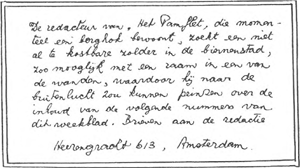 De redacteur van „Het Pamflet, die momen-
teel een berghok bewoont, zoekt een niet
al te kostbare zolder in de binnenstad,
zoo mogelijk met een raam in een van
de wanden, waardoor hij naar de
buitenlucht zou kunnen peinzen over de
inhoud van de volgende nummers van
dit weekblad. Brieven aan de redactie
Heerengracht 613, Amsterdam.